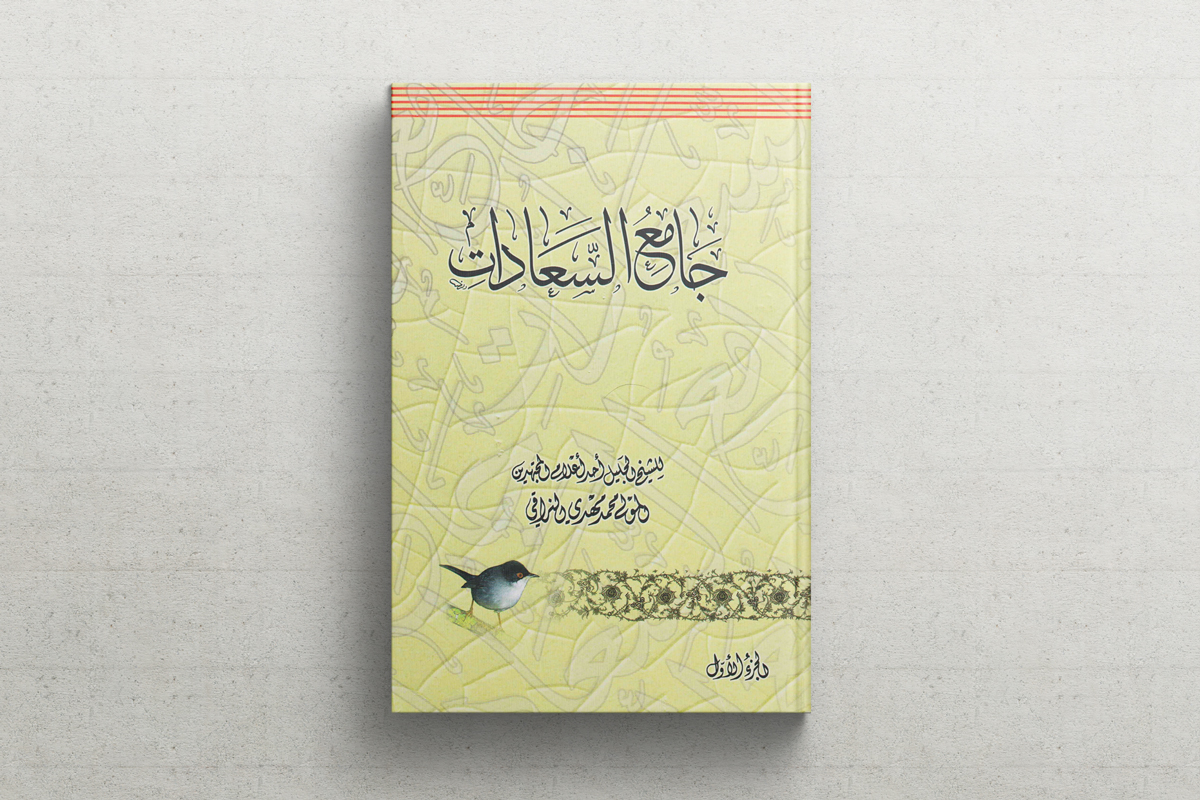 جَامِعُ السَّعَادَاتِ
للشيخ الجليل أحد أعلام المجتهدين
المولى محمد مهدي النراقي
الجزء الأول